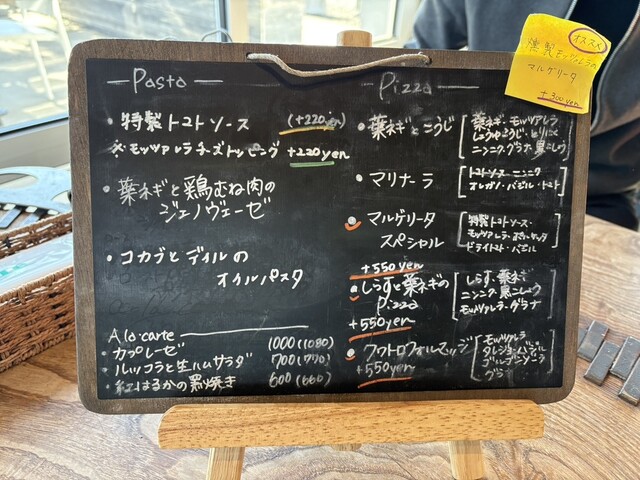 オススメ
燻製モッツァレラの
マルゲリータ
+300yen
Pasta
・特製トマトソース (+220yen)
※モッツァレラチーズトッピング +220yen
・葉ネギと鶏むね肉の
ジェノヴェーゼ
・コカブとディルの
オイルパスタ
A la carte
・カプレーゼ 1000(1080)
・ルッコラと生ハムサラダ 700(770)
・紅はるかの窯焼き 600(660)
Pizza
・葉ネギとこうじ
葉ネギ・モッツァレラ
しょうゆこうじ・とりにく
ニンニク・グラナ・黒こしょう
・マリナーラ
トマトソース・ニンニク
オレガノ・バジル・トマト
・マルゲリータ
スペシャル
+550yen
特製トマトソース・
モッツァレラ
ドライトマト・バジル
・しらすと葉ネギの
Pizza
+550yen
しらす・葉ネギ
ニンニク・黒こしょう
モッツァレラ・グラナ
・クワトロフォルマッジ
+550yen
モッツァレラ
タレジョ・バジル
ゴルゴンゾーラ
グラナ